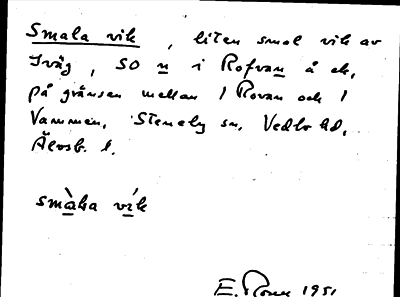 Smala vik, liten smal vik av
Iväg, SO n i Rofvan å ek,
på gränsen mellan 1 Rovan och 1
Vammen, Steneby sn, Vedbo hd,
Älvsb. l.
smàla vík
E. 1951